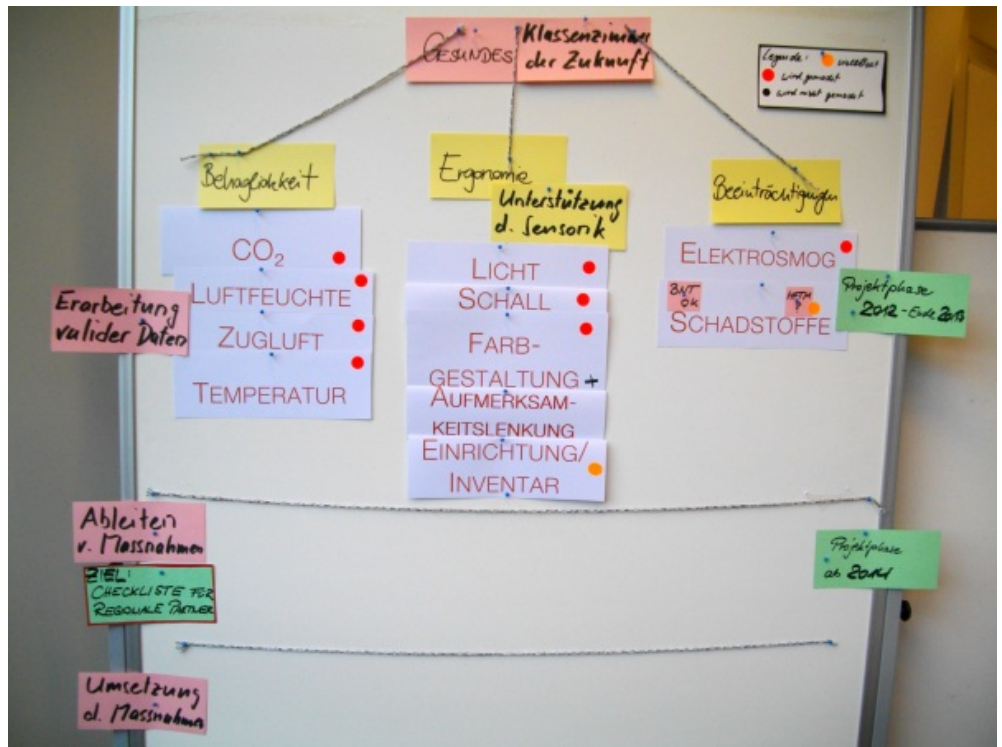 GESUNDES
Klassenzimmer
der Zukunft
Legende:
wird gemacht
wird nicht gemacht
Behaglichkeit
CO₂
LUFTFEUCHTE
ZUGLUFT
TEMPERATUR
Ergonomie
Unterstützung
d. Sensorik
LICHT
SCHALL
FARB-
GESTALTUNG +
AUFMERKSAM-
KEITSLENKUNG
EINRICHTUNG/
INVENTAR
Beeinträchtigungen
ELEKTROSMOG
OK
SCHADSTOFFE
Erarbeitung
valider Daten
Projektphase
2012 - Ende 2013
Ableiten
v. Massnahmen
ZIEL:
CHECKLISTE FÜR
REGIONALE PARTNER
Projektphase
ab 2014
Umsetzung
d. Massnahmen